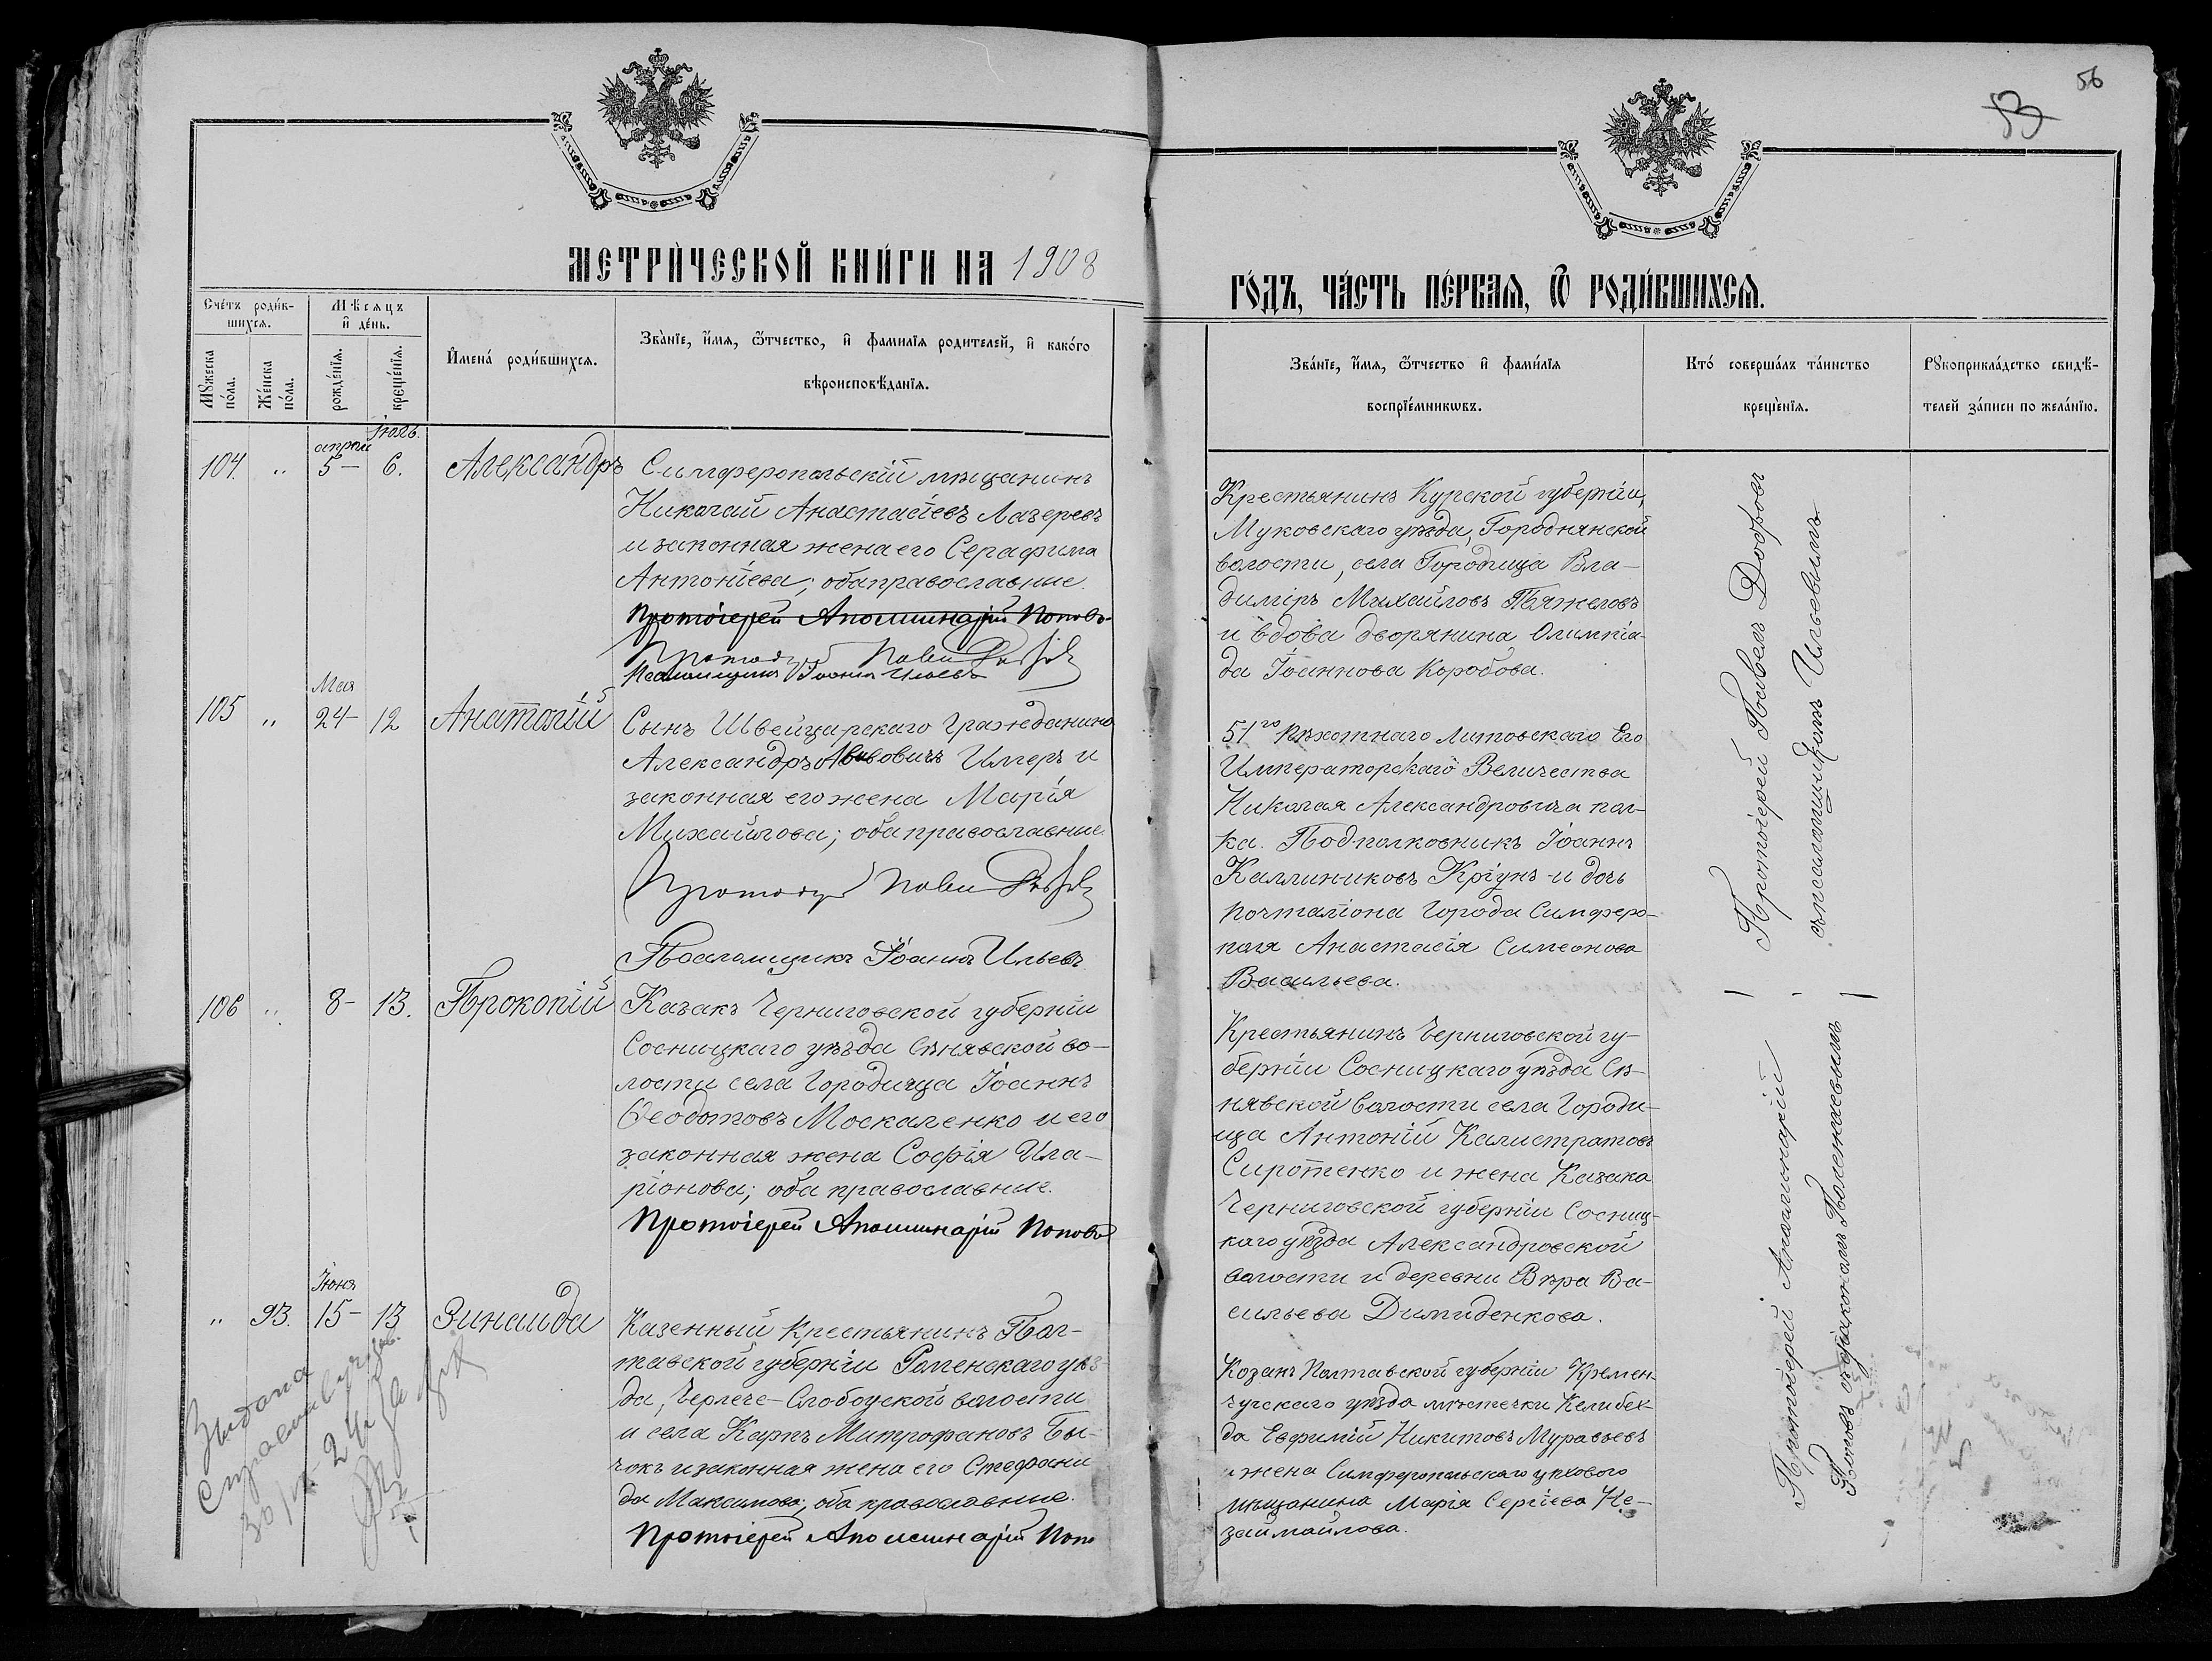 56
53
МЕТРИ́ЧЕСКОЙ КНИ́ГИ НА 1908
ГО́ДЪ, ЧА́СТЬ ПЕ́РВАЯ, Ѿ РОДИ́ВШИХСЯ.
Сче́тъ роди́в-
шихся.
Мѣсяцъ
и де́нь.
Мꙋжеска
по́ла.
Же́нска
по́ла.
рожде́нїя.
креще́нїя.
И҆мена́ роди́вшихся.
Зва́нїе, и҆́мя, ѻ҆́тчество, и҆ фамилїя родителей, и҆ како́го
вѣроисповѣ́данїя.
Зва́нїе, и҆́мя, ѻ҆́тчество и҆ фами́лїя
воспрїе́мникѡвъ.
Кто́ соверша́лъ та́инство
креще́нїя.
Рꙋкоприкла́дство свидѣ́-
телей за́писи по жела́нїю.
Іюль.
апрѣля
104. „ 5– 6. Александръ
Симферопольскій мѣщанинъ
Николай Анастасіевъ Лазеревъ
и законная жена его Серафима
Антоніева; оба православные.
Протоіерей Аполлинарій Поповъ
Протоіерей Павел Добровъ
Псаломщикъ Іоаннъ Ильевъ
Крестьянинъ Курской губерніи,
Муковскаго уѣзда, Городнянской
волости, села Городища Вла-
димiръ Михайловъ Тяжеловъ
и вдова дворянина Олимпіа-
да Іоаннова Коробова.
Протоіерей Павелъ Добровъ
съ псаломщикомъ Ильевымъ
Мая
105 „ 24– 12 Анатолій
Сынъ Швейцарскаго Гражданина
Александръ Львовичъ Имгеръ и
законная его жена Марія
Михайлова; оба православные.
Протоіерей Павел Добровъ
Псаломщикъ Іоаннъ Ильевъ.
51го пѣхотнаго Литовскаго Его
Императорскаго Величества
Николая Александровича пол-
ка. Подполковникъ Іоаннъ
Каллиниковъ Кріунъ и дочь
почталіона Города Симферо-
поля Анастасія Симеонова
Васильева.
106 „ 8– 13. Прокопій
Казакъ Черниговской губерніи
Сосницкаго уѣзда Синявской во-
лости села Городища Іоаннъ
Ѳеодотовъ Москаленко и его
законная жена Софія Ила-
ріонова; оба православные.
Протоіерей Аполлинарій Поповъ
Крестьянинъ Черниговской гу-
берніи Сосницкаго уѣзда Си-
нявской волости села Городи-
ща Антоній Калистратовъ
Сиротенко и жена Казака
Черниговской губерніи Сосниц-
каго уѣзда Александровской
волости и деревни Вѣра Ва-
сильева Димиденкова.
Протоіерей Аполлинарій
Поповъ съ діакономъ
Іюня
„ 93. 15– 13 Зинаида
Казенный Крестьянинъ Пол-
тавской губерніи Роменскаго уѣз-
да, Черлече-Слободской волости
и села Карпъ Митрофановъ Бы-
чокъ и законная жена его Стефани
да Максимова; оба православные.
Протоіерей Аполлинарій Попо
Козакъ Полтавской губерніи Кремен-
чугскаго уѣзда мѣстечки Келибех-
да Евфимій Никитовъ Муравьевъ
и жена Симферопольскаго цехового
мѣщанина Марія Сергіева Не-
займайлова.